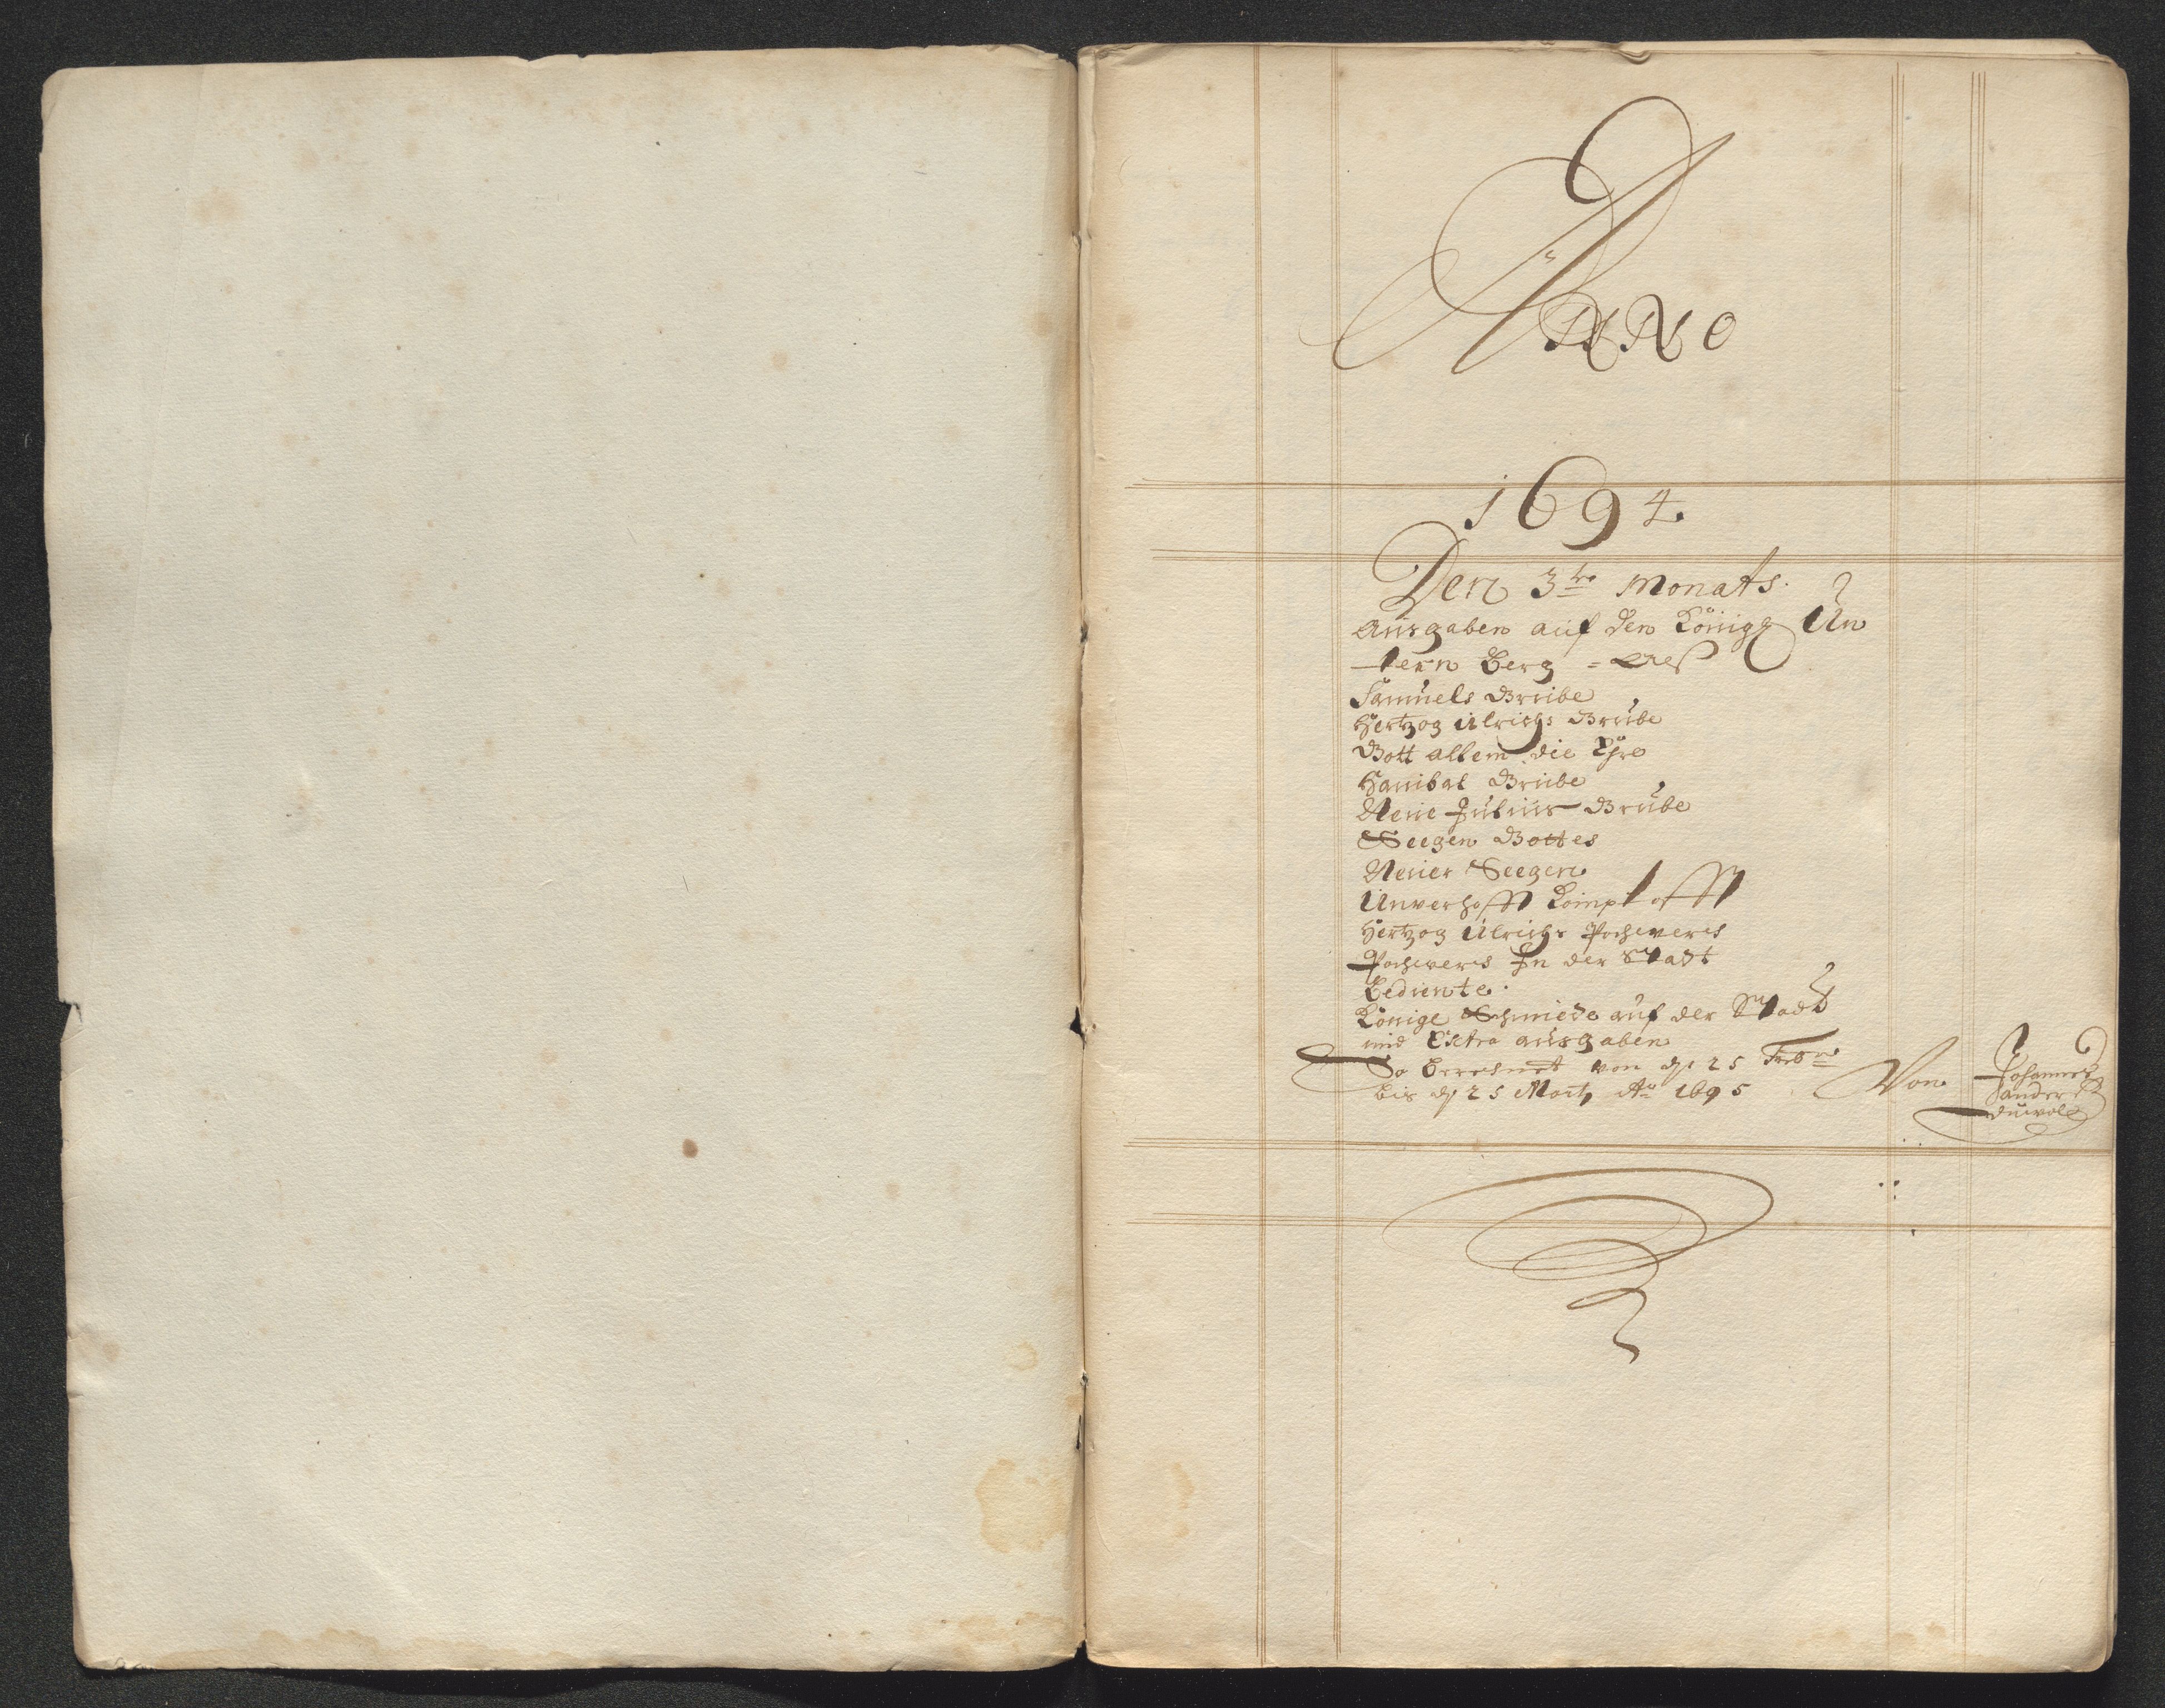 ANNO
1694.
Den 3te Monats.
Ausgaben auf den Königs Un
tern Berg =
Samuels Grube
Hertzog Ulrichs Grube
Gott allem die Ehre
Hanibal Grube
Neue Julius Grube
Seegen Gottes
Neuer Seegen
Unverhofft Kompt offt
Hertzog Ulrichs Pochwerck
Pochwerck In der Stadt
Bediente.
Königs Schmiede auf der Stadt
und Extra ausgaben
So berechnet von d 25 Febr
bis d 25 Marty Ao 1695
Von Johannes
Sander